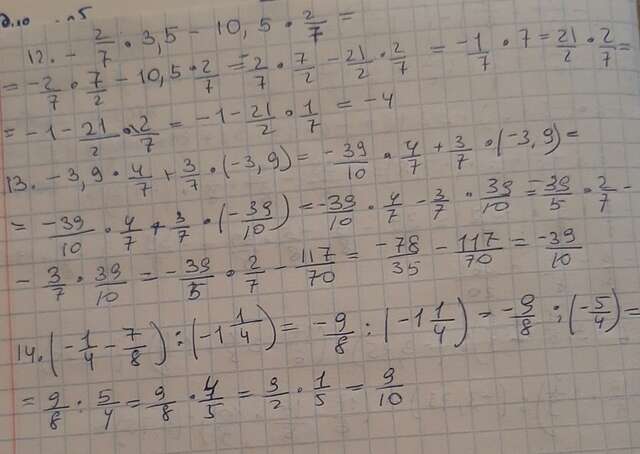 12. - 2/7 · 3,5 - 10,5 · 2/7 =
= - 2/7 · 7/2 - 10,5 · 2/7 = - 2/7 · 7/2 - 21/2 · 2/7 = - 1/7 · 7 = 21/2 · 2/7 =
= -1 - 21/2 · 2/7 = -1 - 21/2 · 1/7 = -4
13. -3,9 · 4/7 + 3/7 · (-3,9) = - 39/10 · 4/7 + 3/7 · (-3,9) =
= - 39/10 · 4/7 + 3/7 · (- 39/10) = - 39/10 · 4/7 - 3/7 · 39/10 = - 39/5 · 2/7 -
- 3/7 · 39/10 = - 39/5 · 2/7 - 117/70 = - 78/35 - 117/70 = - 39/10
14. (- 1/4 - 7/8) : (-1 1/4) = - 9/8 : (-1 1/4) = - 9/8 : (- 5/4) =
= 9/8 : 5/4 = 9/8 · 4/5 = 9/2 · 1/5 = 9/10